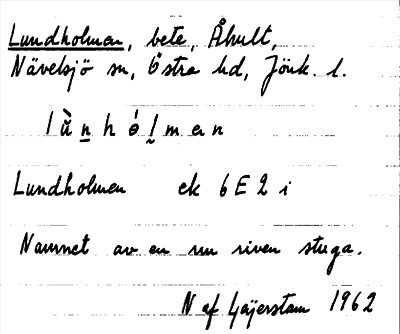 Lundholmen, bete, Åhult,
Nävelsjö sn, Östra hd, Jönk. l.
lùn̲hólman
Lundholmen ek 6E2i
Namnet av en nu riven stuga.
N af Gajerstam 1962